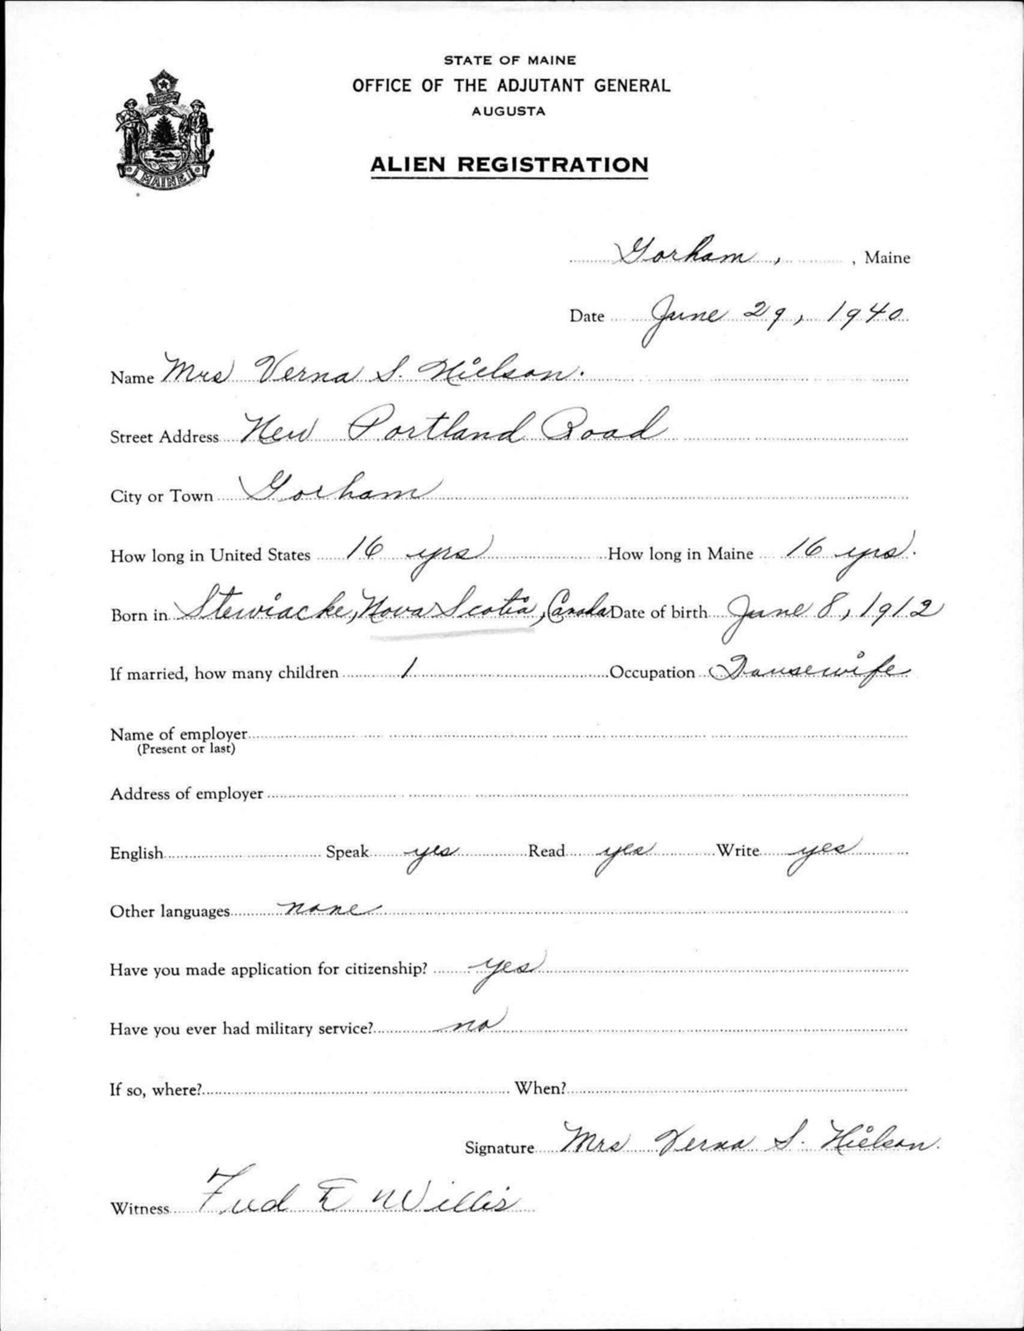 STATE OF MAINE
OFFICE OF THE ADJUTANT GENERAL
AUGUSTA
ALIEN REGISTRATION
MAINE
Gorham, , Maine
Date June 29, 1940
Name Mrs Verna S. Nielson.
Street Address New Portland Road
City or Town Gorham
How long in United States 16 yrs How long in Maine 16 yrs.
Born in Stewiacke, Nova Scotia, Canada Date of birth June 8, 1912
If married, how many children 1 Occupation Housewife
Name of employer
(Present or last)
Address of employer
English Speak yes Read yes Write yes
Other languages none
Have you made application for citizenship? yes
Have you ever had military service? no
If so, where? When?
Signature Mrs Verna S. Nielson.
Witness Fred E Willis